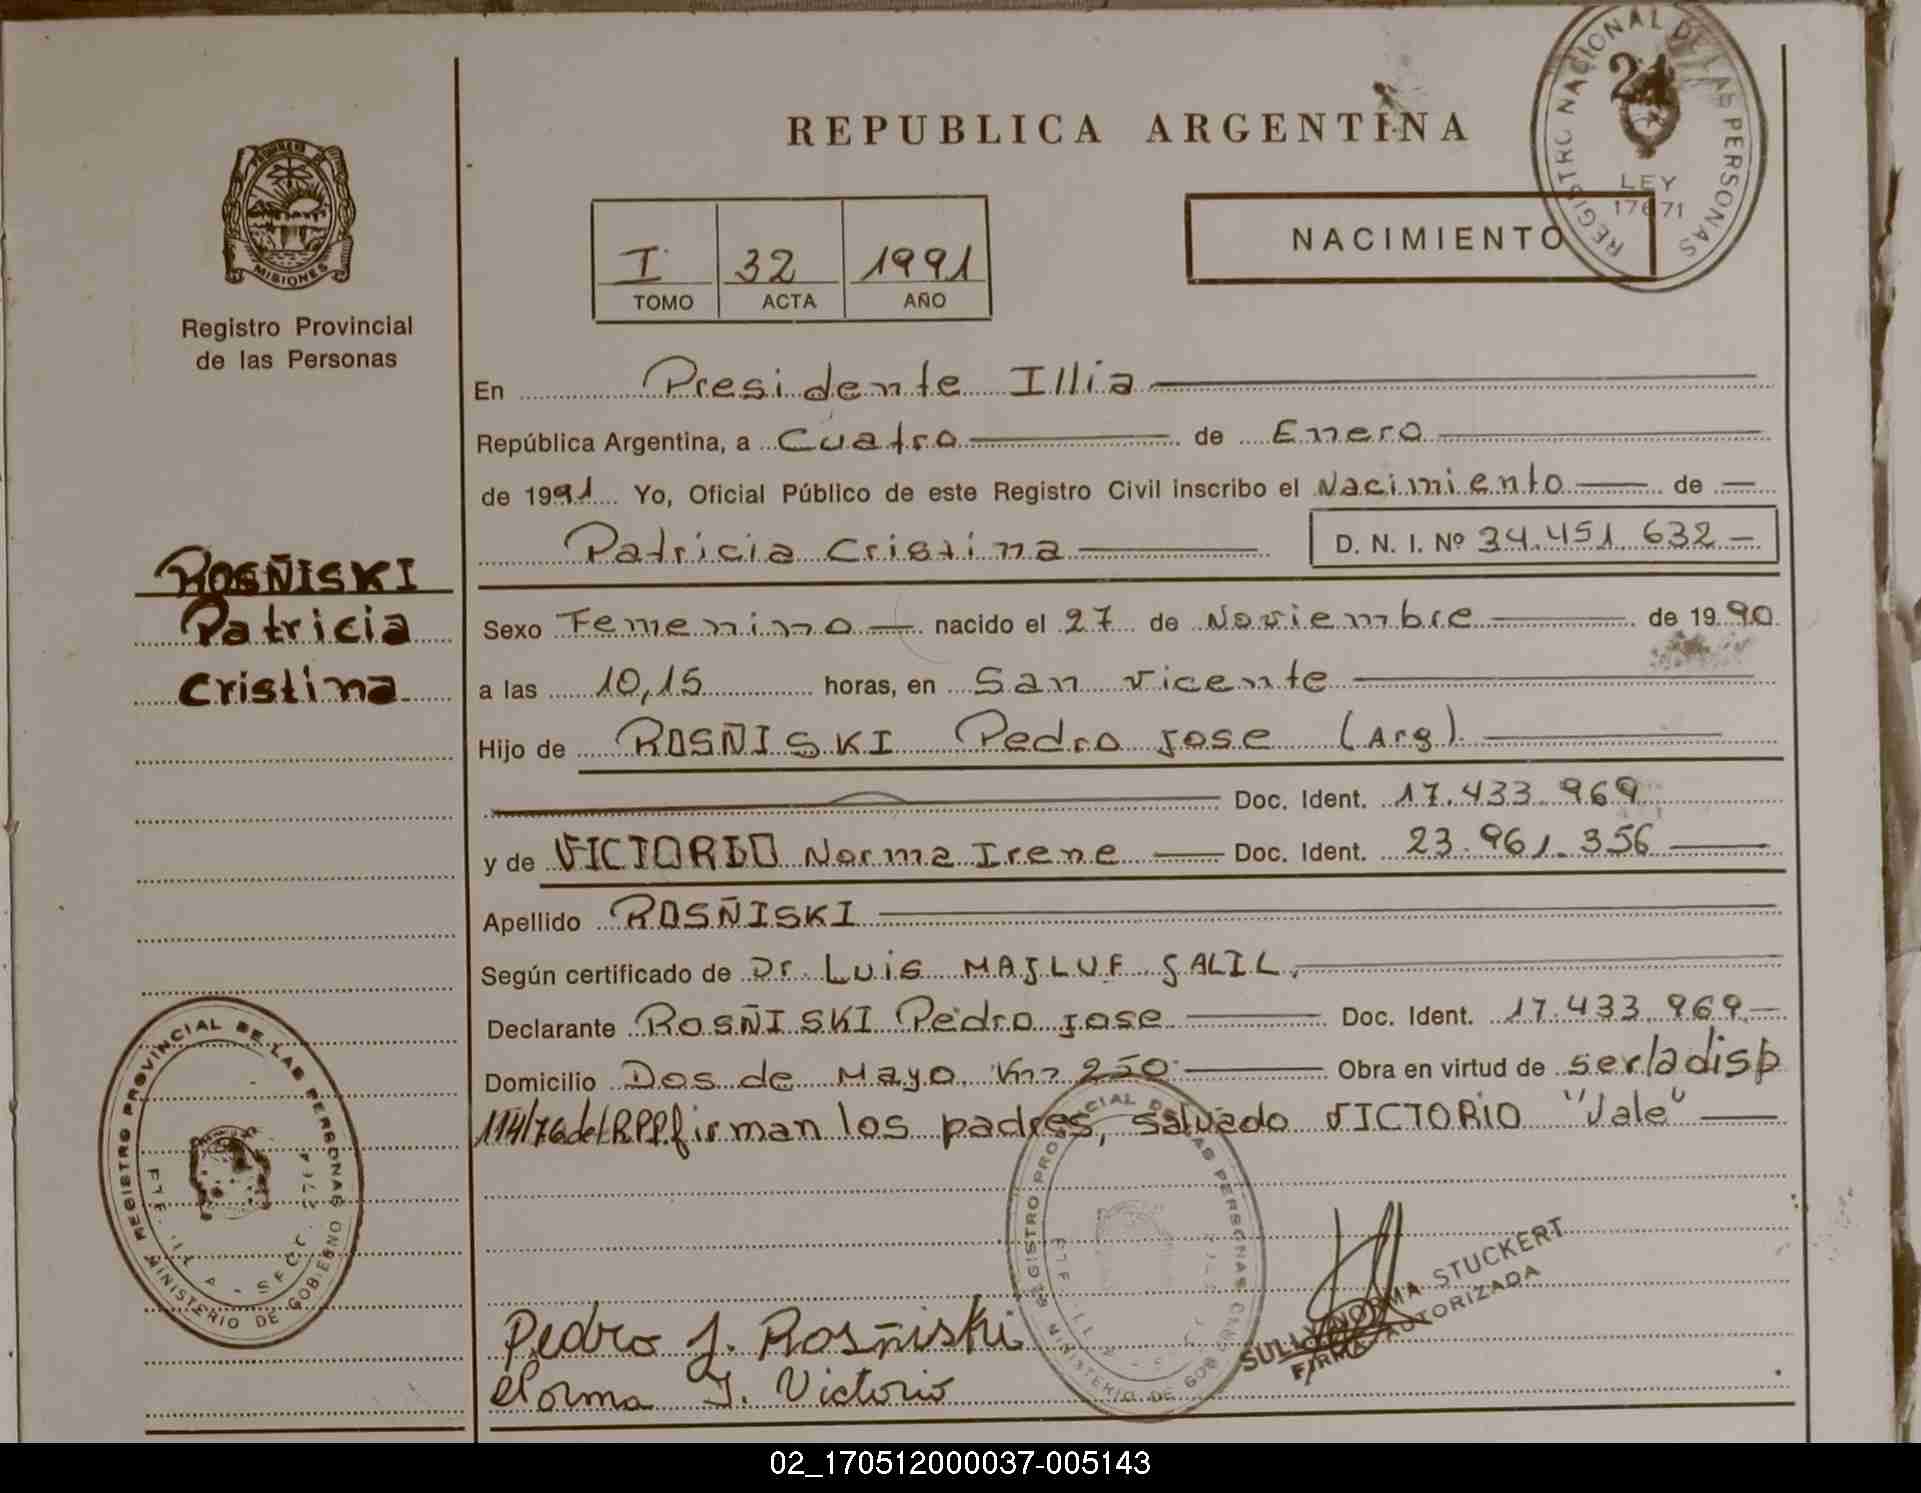 REPUBLICA ARGENTINA
REGISTRO NACIONAL DE LAS PERSONAS
21
LEY
17671
PROVINCIA DE
MISIONES
Registro Provincial
de las Personas
I 32 1991
TOMO ACTA AÑO
NACIMIENTO
En Presidente Illia
República Argentina, a Cuatro de Enero
de 1991 Yo, Oficial Público de este Registro Civil inscribo el Nacimiento de
Patricia Cristina D. N. I. Nº 34.451 632
ROSÑISKI
Patricia
Cristina
Sexo Femenino nacido el 27 de Noviembre de 1990
a las 10,15 horas, en San Vicente
Hijo de ROSÑISKI Pedro Jose (Arg)
Doc. Ident. 17.433.969
y de VICTORIO Norma Irene Doc. Ident. 23.961.356
Apellido ROSÑISKI
Según certificado de Dr. Luis MAJLUF JALIL
Declarante ROSÑISKI Pedro Jose Doc. Ident. 17.433.969
Domicilio Dos de Mayo Km 250 Obra en virtud de ser la disp
114/76 del R.P.P. firman los padres, salvado VICTORIO "Vale"
REGISTRO PROVINCIAL DE LAS PERSONAS
MINISTERIO DE GOBIERNO
REGISTRO PROVINCIAL DE LAS PERSONAS
MINISTERIO DE GOB
Pedro J. Rosñiski
Norma I. Victorio
SULLY NORMA STUCKERT
FIRMA AUTORIZADA
02_170512000037-005143